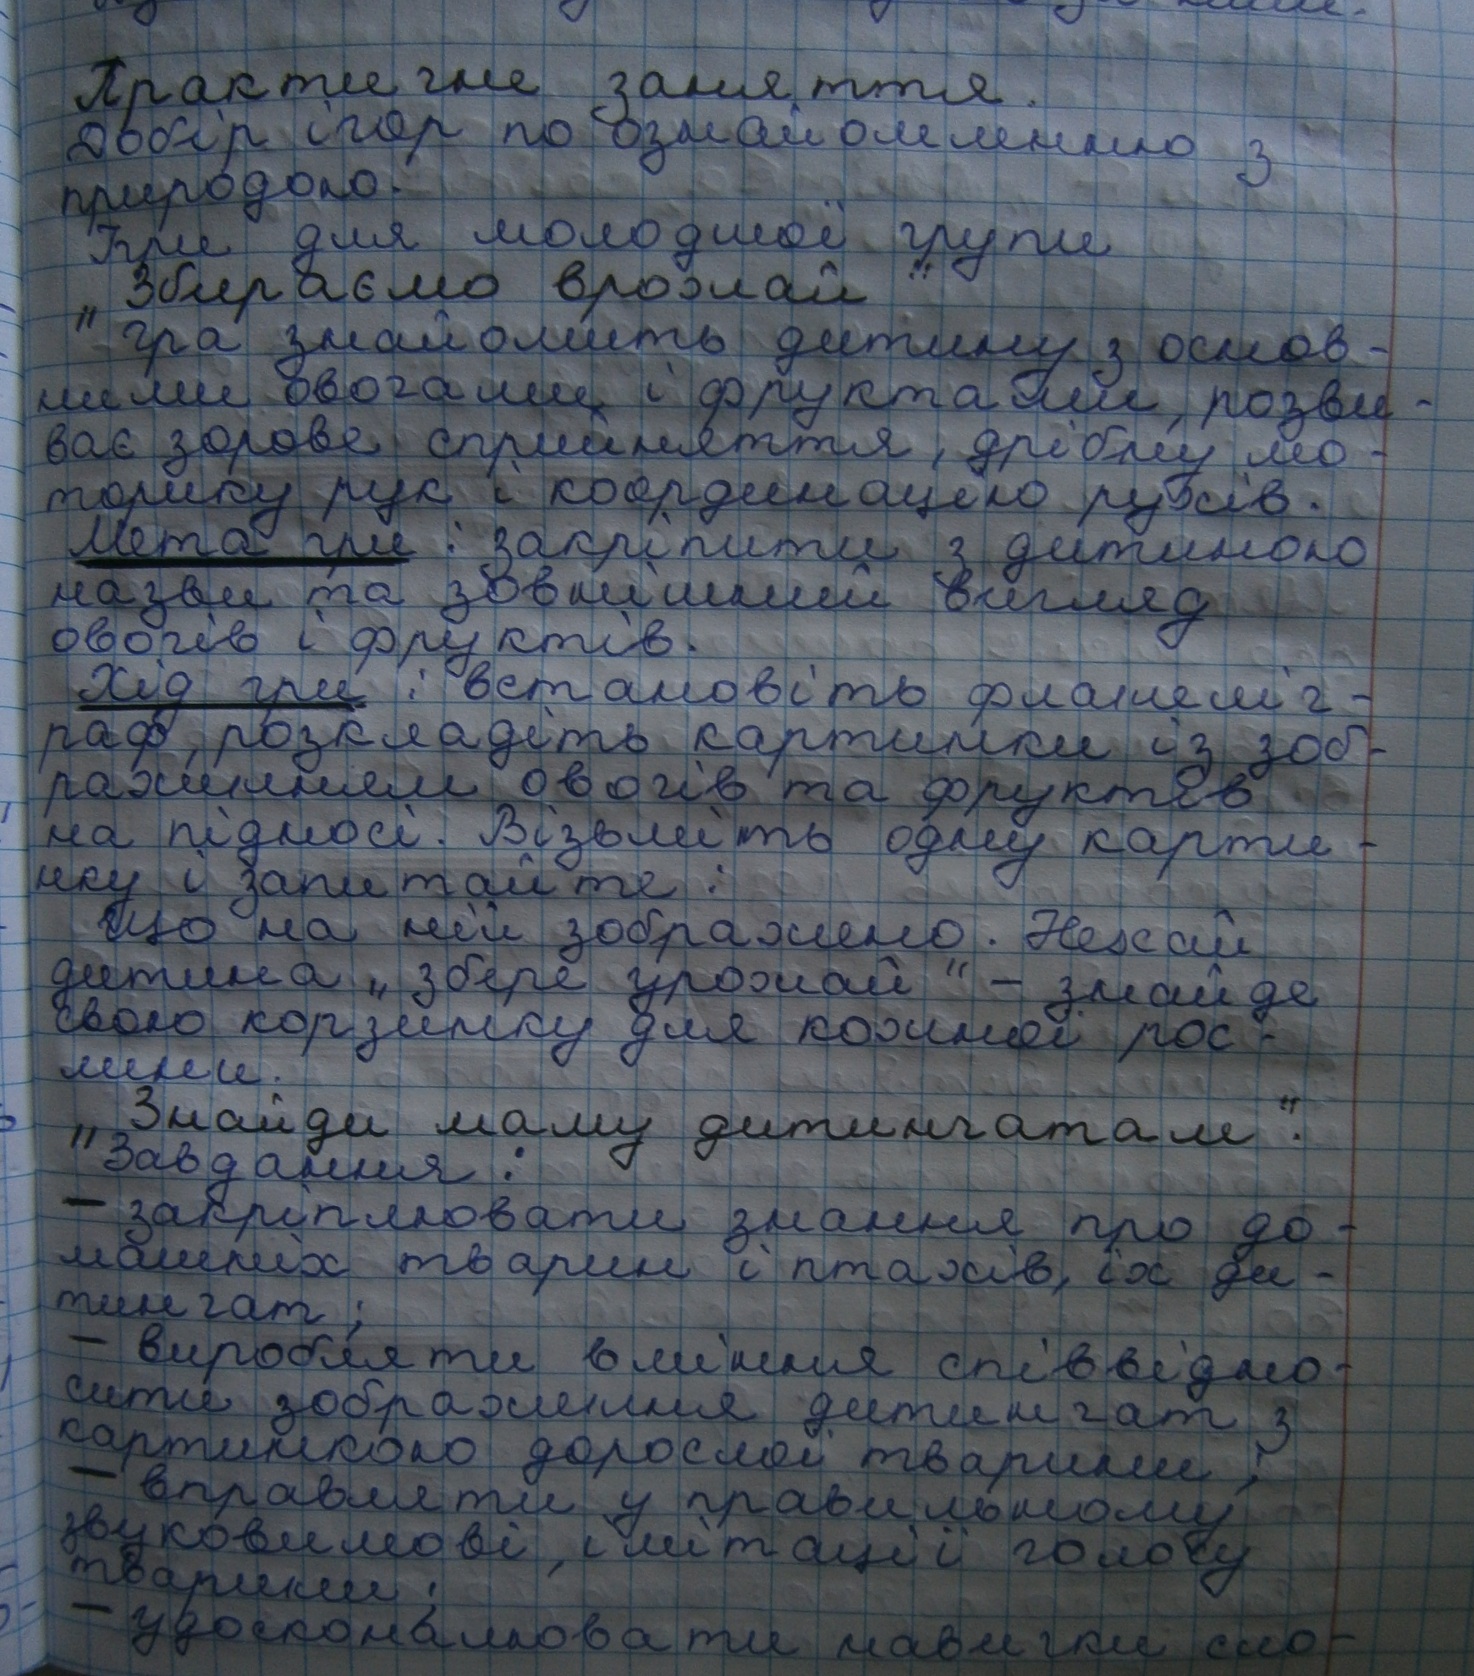 Практичне заняття.
Добір ігор по ознайомленню з
природою.
Ігри для молодшої групи
„Збираємо врожай"
Гра знайомить дитину з основ-
ними овочами і фруктами, розви-
ває зорове сприйняття, дрібну мо-
торику рук і координацію рухів.
Мета гри: закріпити з дитиною
назви та зовнішній вигляд
овочів і фруктів.
Хід гри: встановіть фланеліг-
раф, розкладіть картинки із зоб-
раженням овочів та фруктів
на підносі. Візьміть одну карти-
нку і запитайте:
що на ній зображено. Нехай
дитина „збере урожай" - знайде
свою корзинку для кожної рос-
лини.
„Знайди маму дитинчатам".
Завдання:
- закріплювати знання про до-
машніх тварин і птахів, їх ди-
тинчат;
- виробляти вміння співвідно-
сити зображення дитинчат з
картинкою дорослої тварини;
- вправляти у правильному
звуковимові, імітації голосу
тварини;
- удосконалювати навички спо-